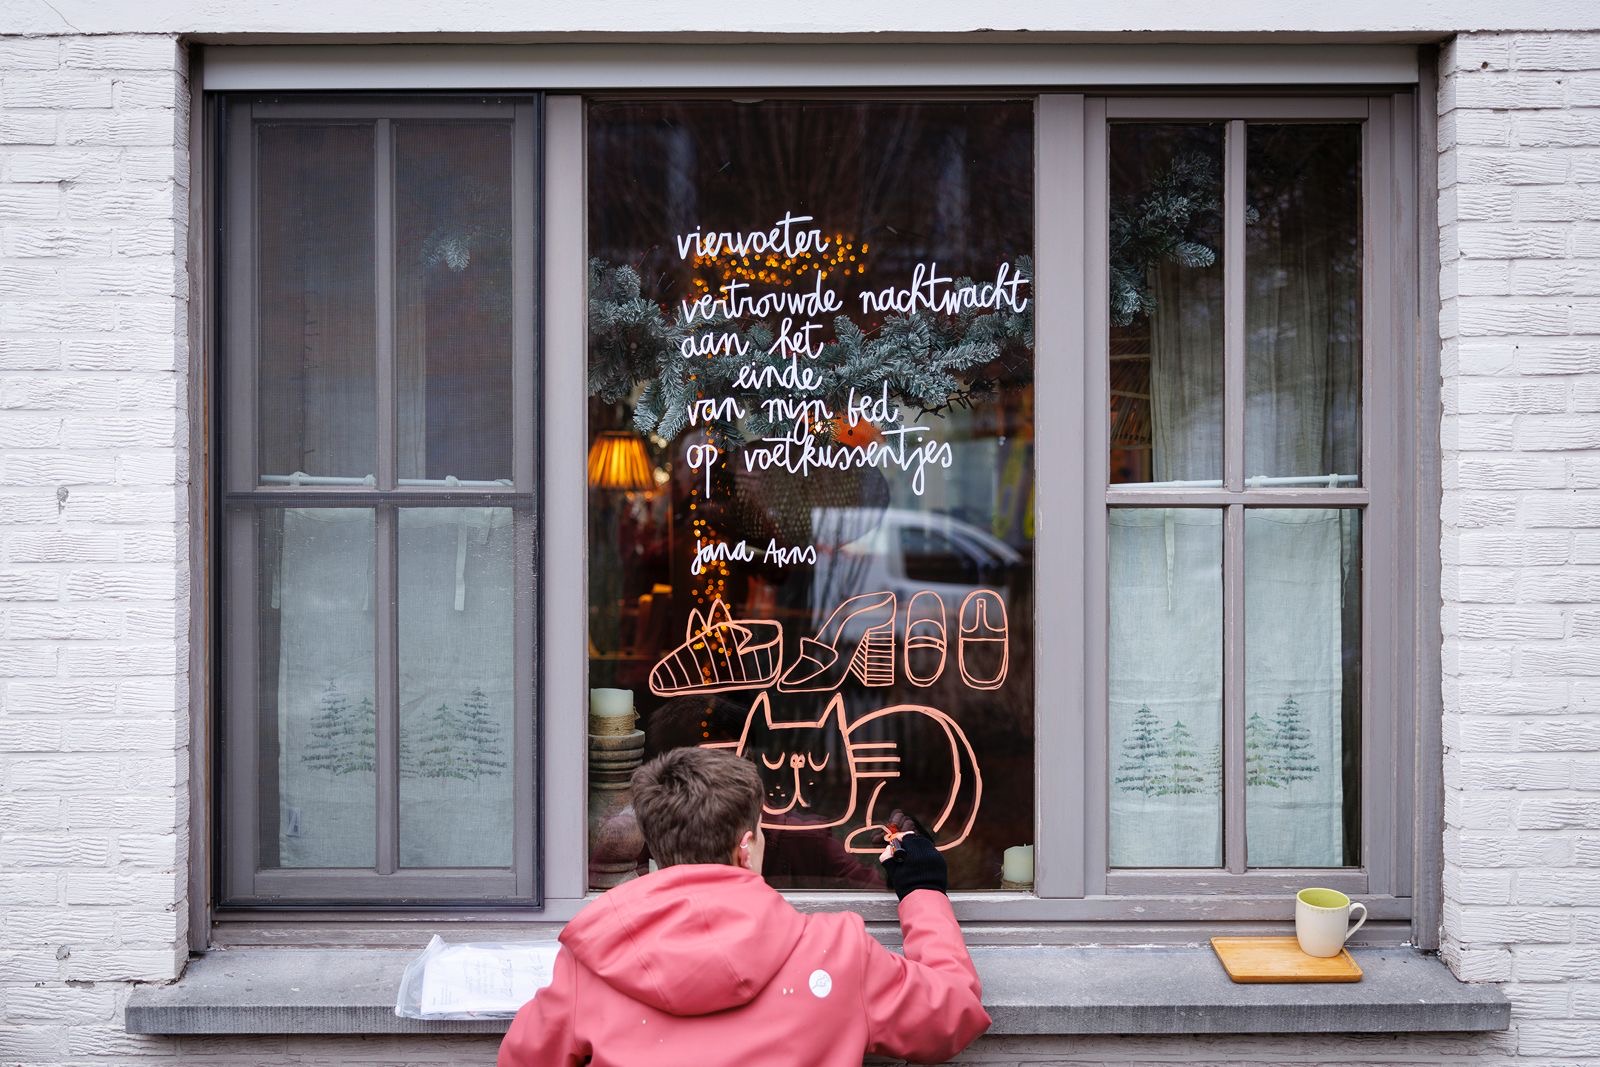 viervoeter
vertrouwde nachtwacht
aan het
einde
van mijn bed
op voetkussentjes
jana Arns